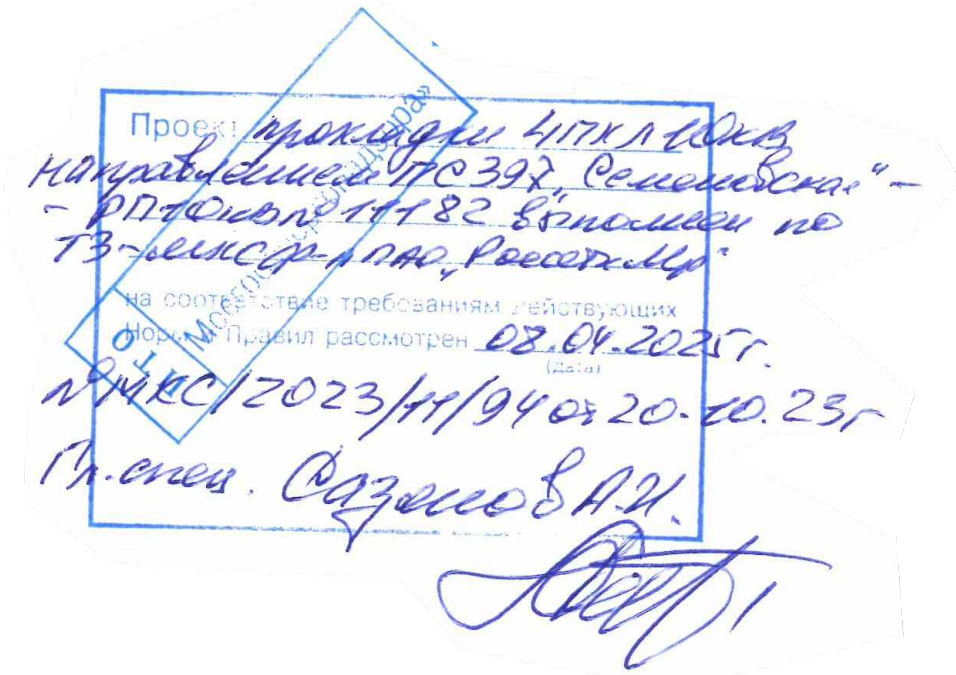 Проект прокладки 4ПКЛ 10кВ
направлением ПС 397 „Семеновская" –
– РП 10кВ № 11182 выполнен по
ТЗ МКС ф-л ПАО „Россети МР"
на соответствие требованиям действующих
Норм и Правил рассмотрен 08.04.2025 г.
(Дата)
№ МКС/2023/11/94 от 20.10.23г
Гл. спец. Сазонов А.И.
ПТО